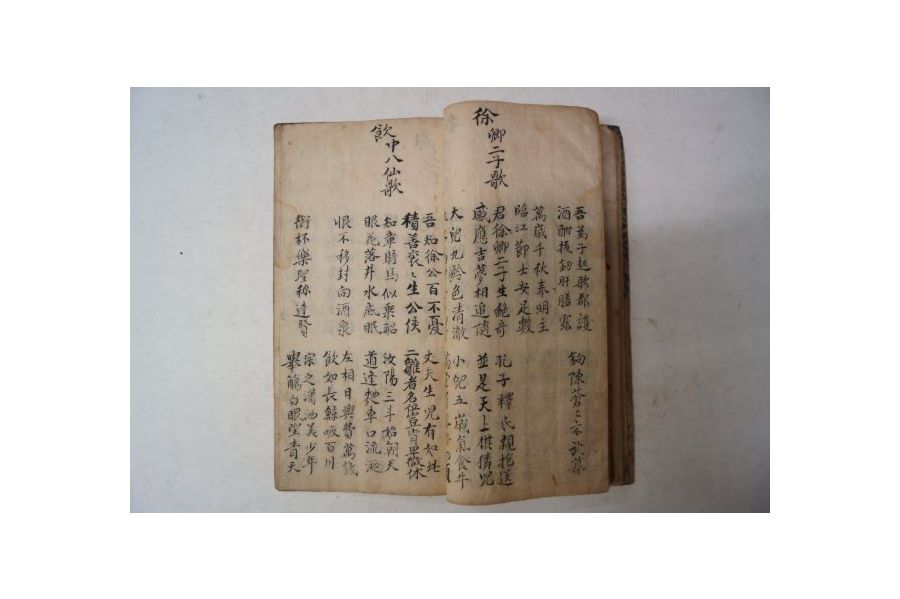 吾爲子起歌都護
酒酣拔釼肝膽露 鉤陳蒼〻玄武暮
萬歲千秋奉明主
臨江節士安足數
徐卿二子歌
君徐卿二子生絶奇 孔子釋氏親抱送
感應吉夢相追隨 並是天上猉獜児
大兒九齡色清澈 小兒五歲氣食牛
吾知徐公百不憂 丈夫生児有如此
積善袞〻生公侯 二雛者名位豈肯卑微休
飲中八仙歌
知章騎馬似乘船 汝陽三斗始朝天
眼花落井水底眠 道逢麯車口流涎
恨不移封向酒泉 左相日興費萬錢
飲如長鯨吸百川
銜杯樂聖称避賢 宗之瀟洒美少年
擧觴白眼望靑天